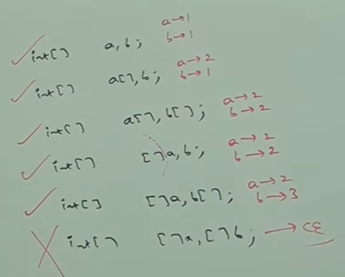 int[] a,b; a→1 b→1
int[] a[],b; a→2 b→1
int[] a[],b[]; a→2 b→2
int[] []a,b; a→2 b→2
int[] []a,b[]; a→2 b→3
int[] []a,[]b; → CE